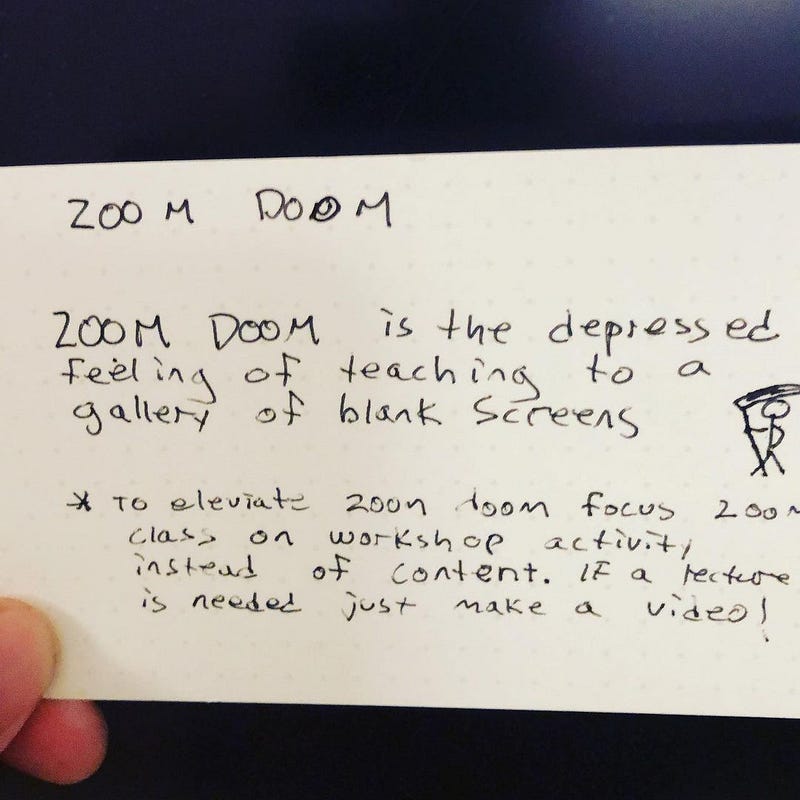 ZOOM DOOM
ZOOM DOOM is the depressed
feeling of teaching to a
gallery of blank screens
* To eleviate zoon doom focus zoom
class on workshop activity
instead of content. IF a lecture
is needed just make a video!